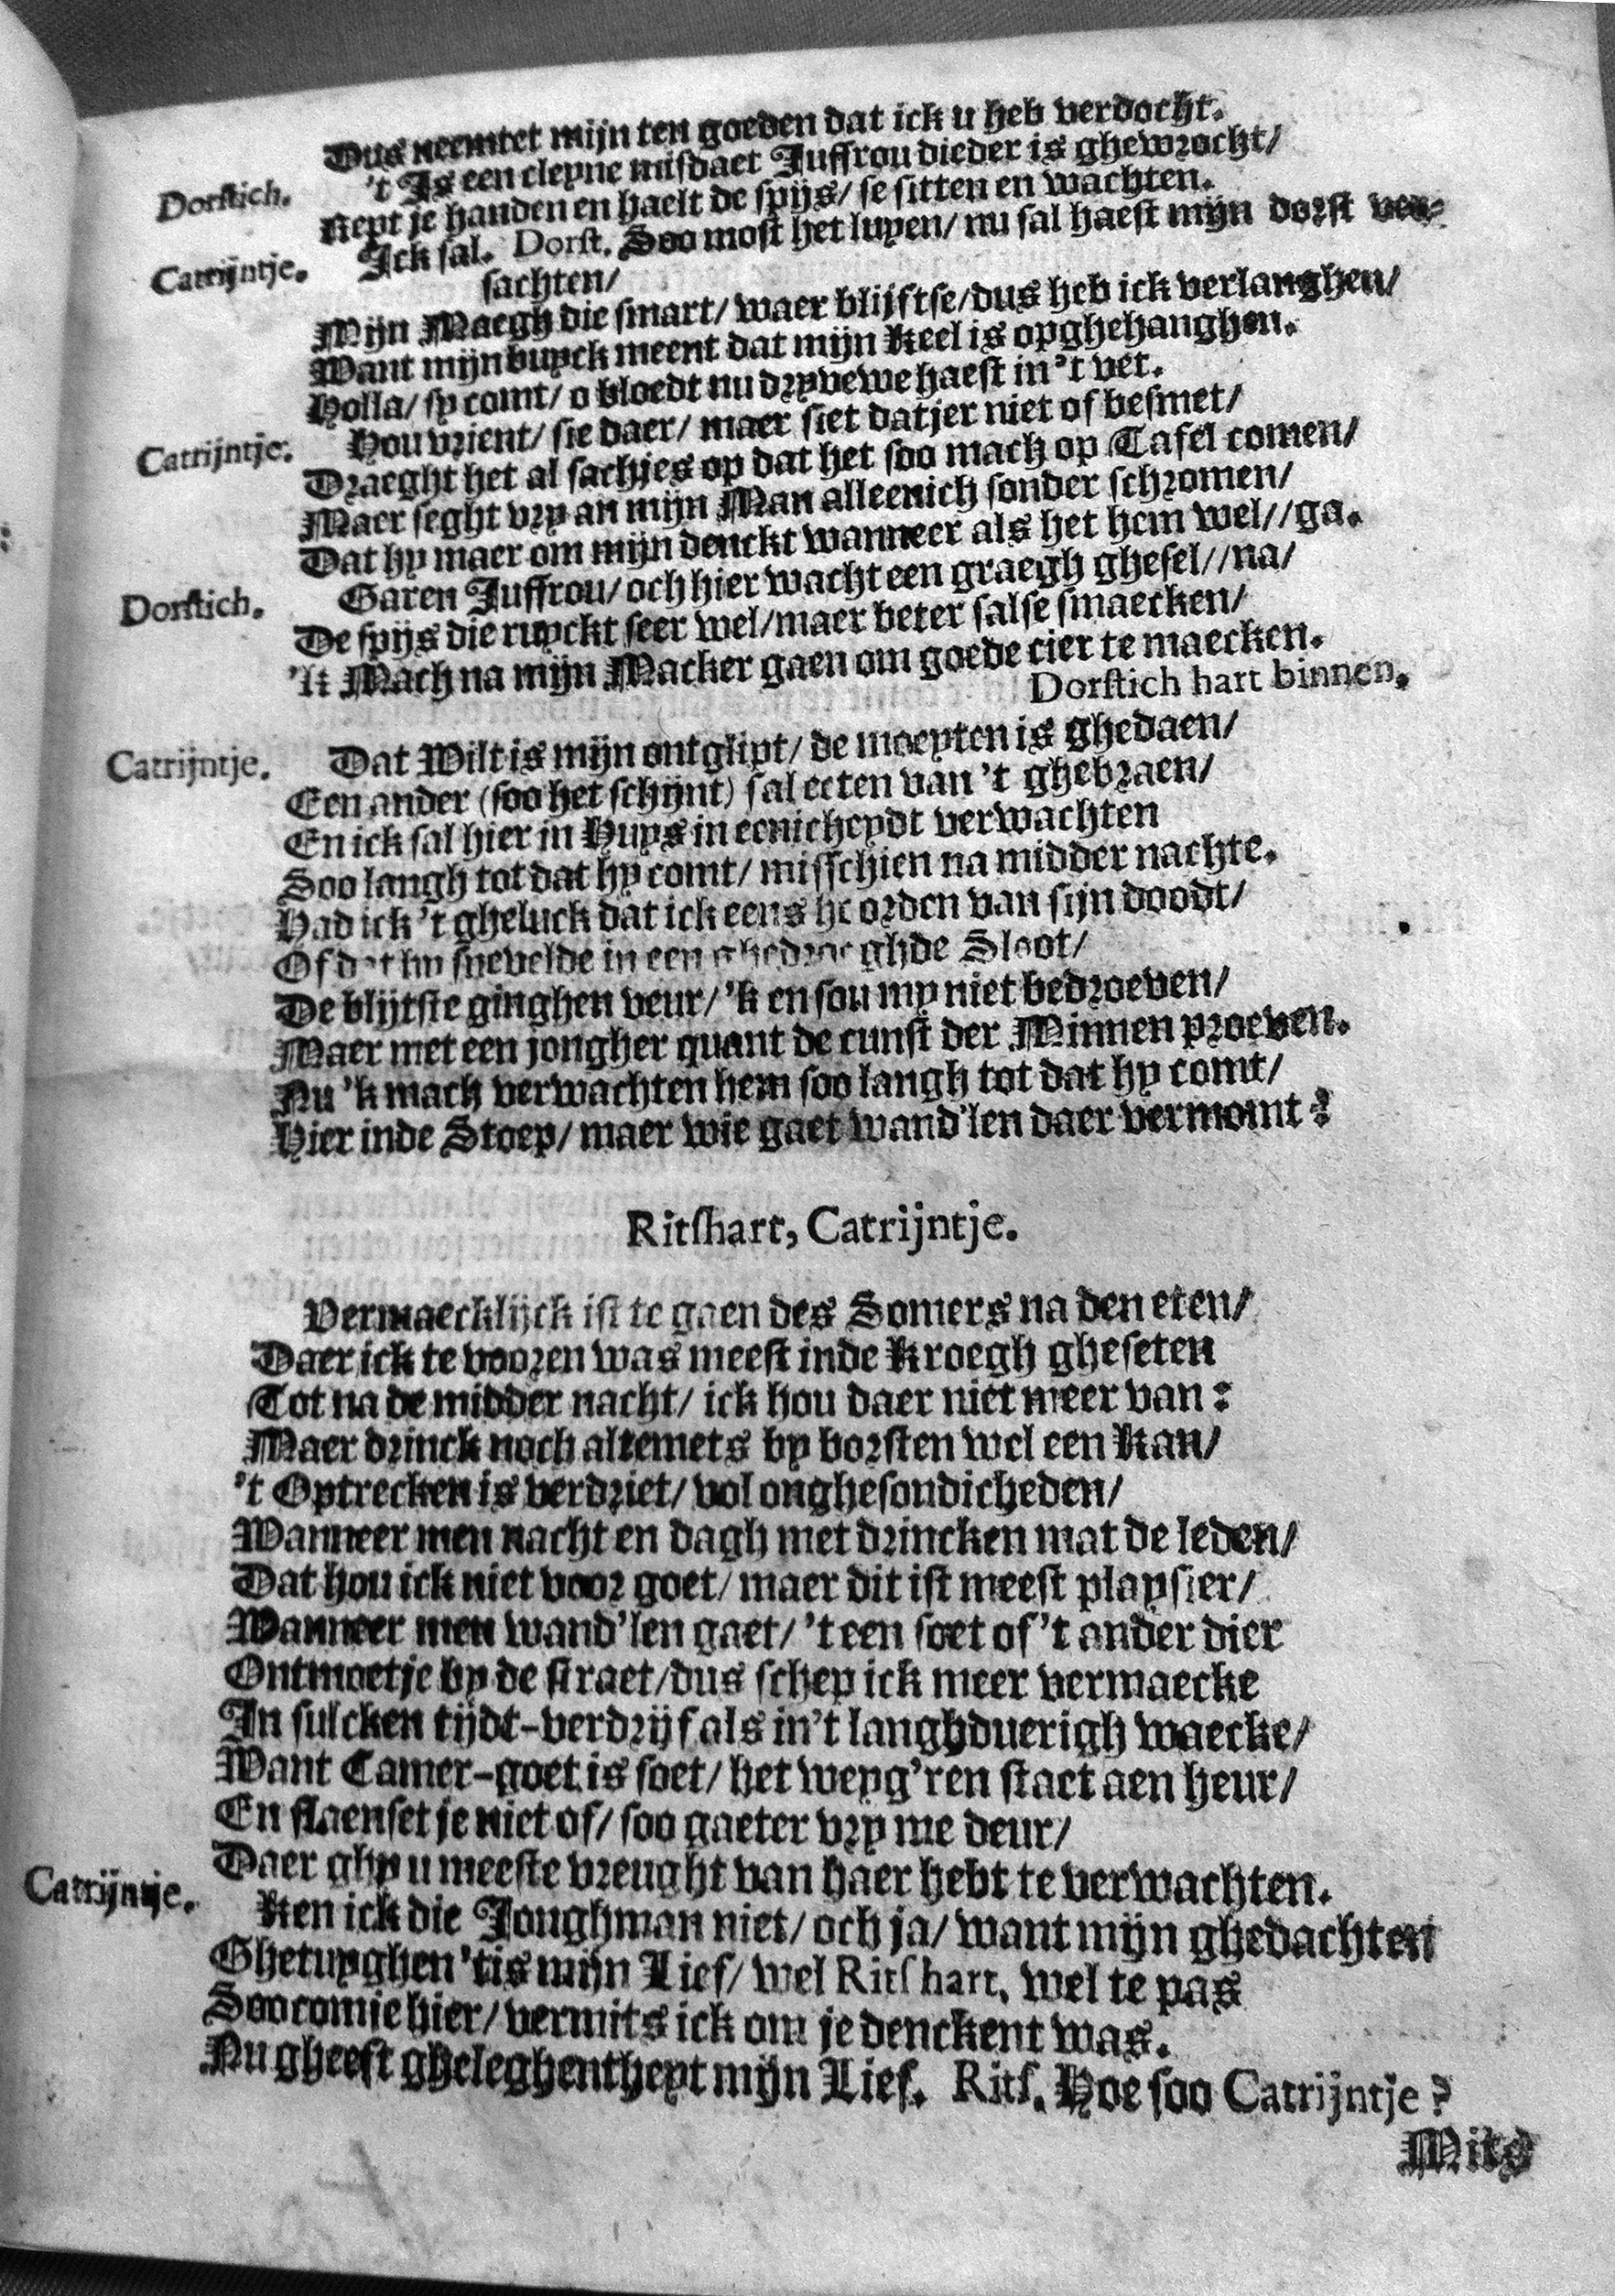 Dus neemtet mijn ten goeden dat ick u heb verdocht.
Dorstich. 't Is een cleyne misdaet Juffrou dieder is ghewrocht/
Rept je handen en haelt de spijs/ se sitten en wachten.
Catrijntje. Ick sal. Dorst. Soo most het luyen/ nu sal haest mijn dorst ver-
sachten/
Mijn Maegh die smart/ waer blijftse/ dus heb ick verlanghen/
Want mijn buyck meent dat mijn keel is opghehanghen.
Holla/ sy comt/ o bloedt nu dryvewe haest in 't vet.
Catrijntje. Hou vrient/ sie daer/ maer siet datjer niet of besmet/
Draeght het al sachjes op dat het soo mach op Tafel comen/
Maer seght vry an mijn Man alleenich sonder schromen/
Dat hy maer om mijn denckt wanneer als het hem wel//ga.
Dorstich. Garen Juffrou/ och hier wacht een graegh ghesel//na/
De spijs die ruyckt seer wel/ maer beter salse smaecken/
'k Mach na mijn Macker gaen om goede cier te maecken.
Dorstich hart binnen.
Catrijntje. Dat Wilt is mijn ontglipt/ de moeyten is ghedaen/
Een ander (soo het schijnt) sal eeten van 't ghebraen/
En ick sal hier in Huys in eenicheydt verwachten
Soo langh tot dat hy comt/ misschien na midder nachte.
Had ick 't gheluck dat ick eens hoorden van sijn doodt/
Of dat hy snevelde in een ghedroeghde Sloot/
De blijtste ginghen veur/ 'k en sou my niet bedroeven/
Maer met een jongher quant de cunst der Minnen proeven.
Nu 'k mach verwachten hem soo langh tot dat hy comt/
Hier inde Stoep/ maer wie gaet wand'len daer vermomt?
Ritshart, Catrijntje.
Vermaecklijck ist te gaen des Somers na den eten/
Daer ick te vooren was meest inde Kroegh gheseten
Tot na de midder nacht/ ick hou daer niet meer van:
Maer drinck noch altemets by borsten wel een Kan/
't Optrecken is verdriet/ vol onghesondicheden/
Wanneer men nacht en dagh met drincken mat de leden/
Dat hou ick niet voor goet/ maer dit ist meest playsier/
Wanneer men wand'len gaet/ 't een soet of 't ander dier
Ontmoetje by de straet/ dus schep ick meer vermaecke
In sulcken tijdt-verdrijf als in't langhduerigh waecke/
Want Camer-goet is soet/ het weyg'ren staet aen heur/
En slaenset je niet of/ soo gaeter vry me deur/
Daer ghy u meeste vreught van haer hebt te verwachten.
Catrijntje. Ken ick die Jonghman niet/ och ja/ want mijn ghedachten
Ghetuyghen 'tis mijn Lief/ wel Ritshart, wel te pas
Soo comje hier/ vermits ick om je denckent was.
Nu gheeft gheleghentheyt mijn Lief. Rits. Hoe soo Catrijntje?
Mits